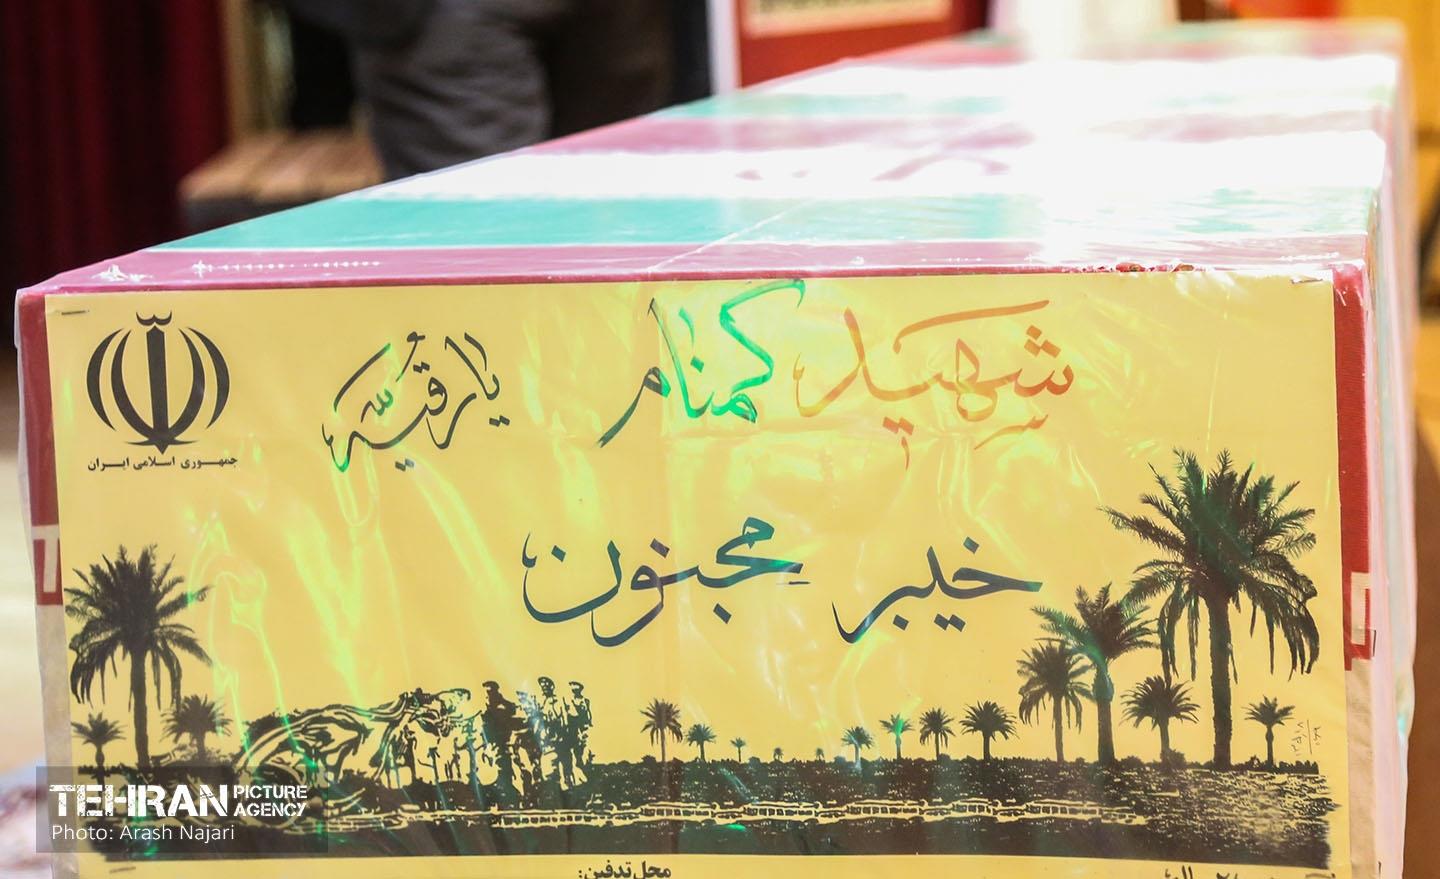 شهید گمنام یا رقیه
جمهوری اسلامی ایران
خیبر مجنون
TEHRAN PICTURE AGENCY
Photo: Arash Najari
محل تدفین: